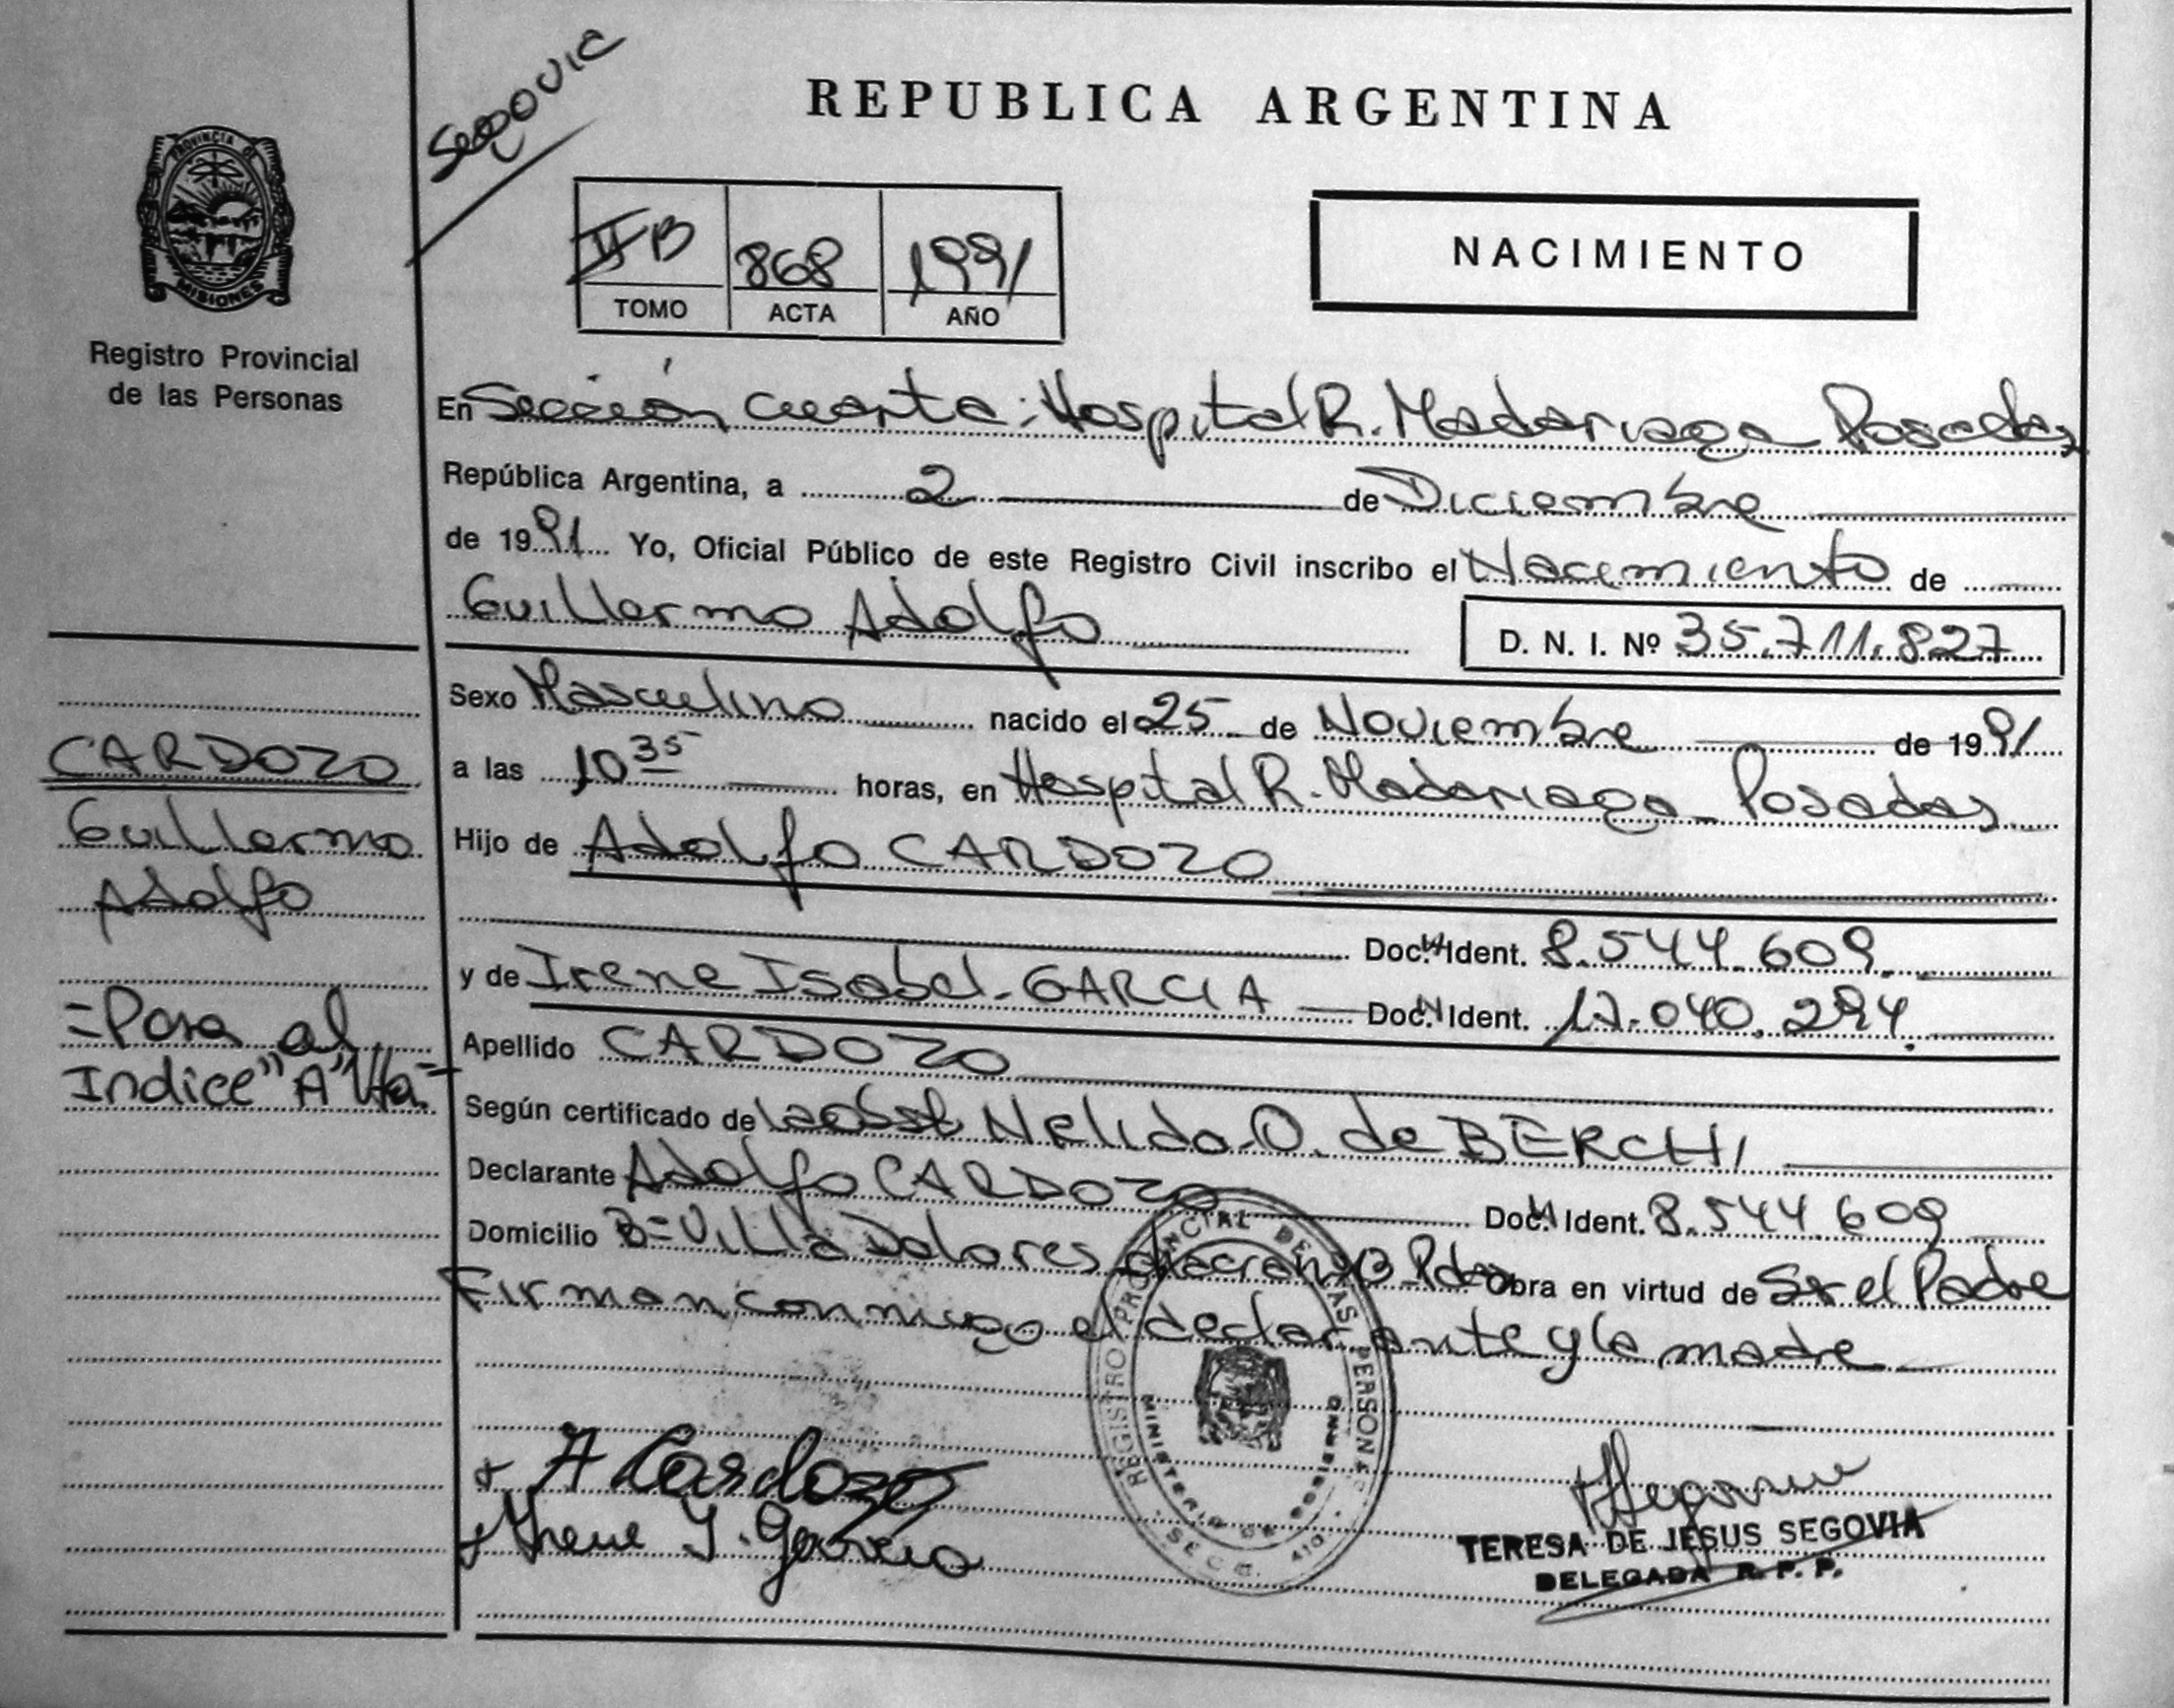 Segovia
REPUBLICA ARGENTINA
PROVINCIA DE
MISIONES
Registro Provincial
de las Personas
II B 868 1991
TOMO ACTA AÑO
NACIMIENTO
En Sección cuarta: Hospital R. Madariaga Posadas
República Argentina, a 2 de Diciembre
de 1991 Yo, Oficial Público de este Registro Civil inscribo el Nacimiento de
Guillermo Adolfo D. N. I. Nº 35.711.827
Sexo Masculino nacido el 25 de Noviembre de 1991
a las 10 35 horas, en Hospital R. Madariaga - Posadas
Hijo de Adolfo CARDOZO
Doc. Ident. 8.544.609.
y de Irene Isabel - GARCIA Doc. Ident. 17.040.294.
Apellido CARDOZO
Según certificado de la obst Nelida O. de BERCHI
Declarante Adolfo CARDOZO Doc. Ident. 8.544.609
Domicilio Bº Villa Dolores Pdas Obra en virtud de Ser el Padre
Firman conmigo el declarante y la madre
CARDOZO
Guillermo
Adolfo
=Pasa al
Indice "A" Vta.=
REGISTRO PROVINCIAL DE LAS PERSONAS
MINISTERIO DE GOBIERNO
A Cardozo
Irene I. Garcia
TERESA DE JESUS SEGOVIA
DELEGADA R. P. P.